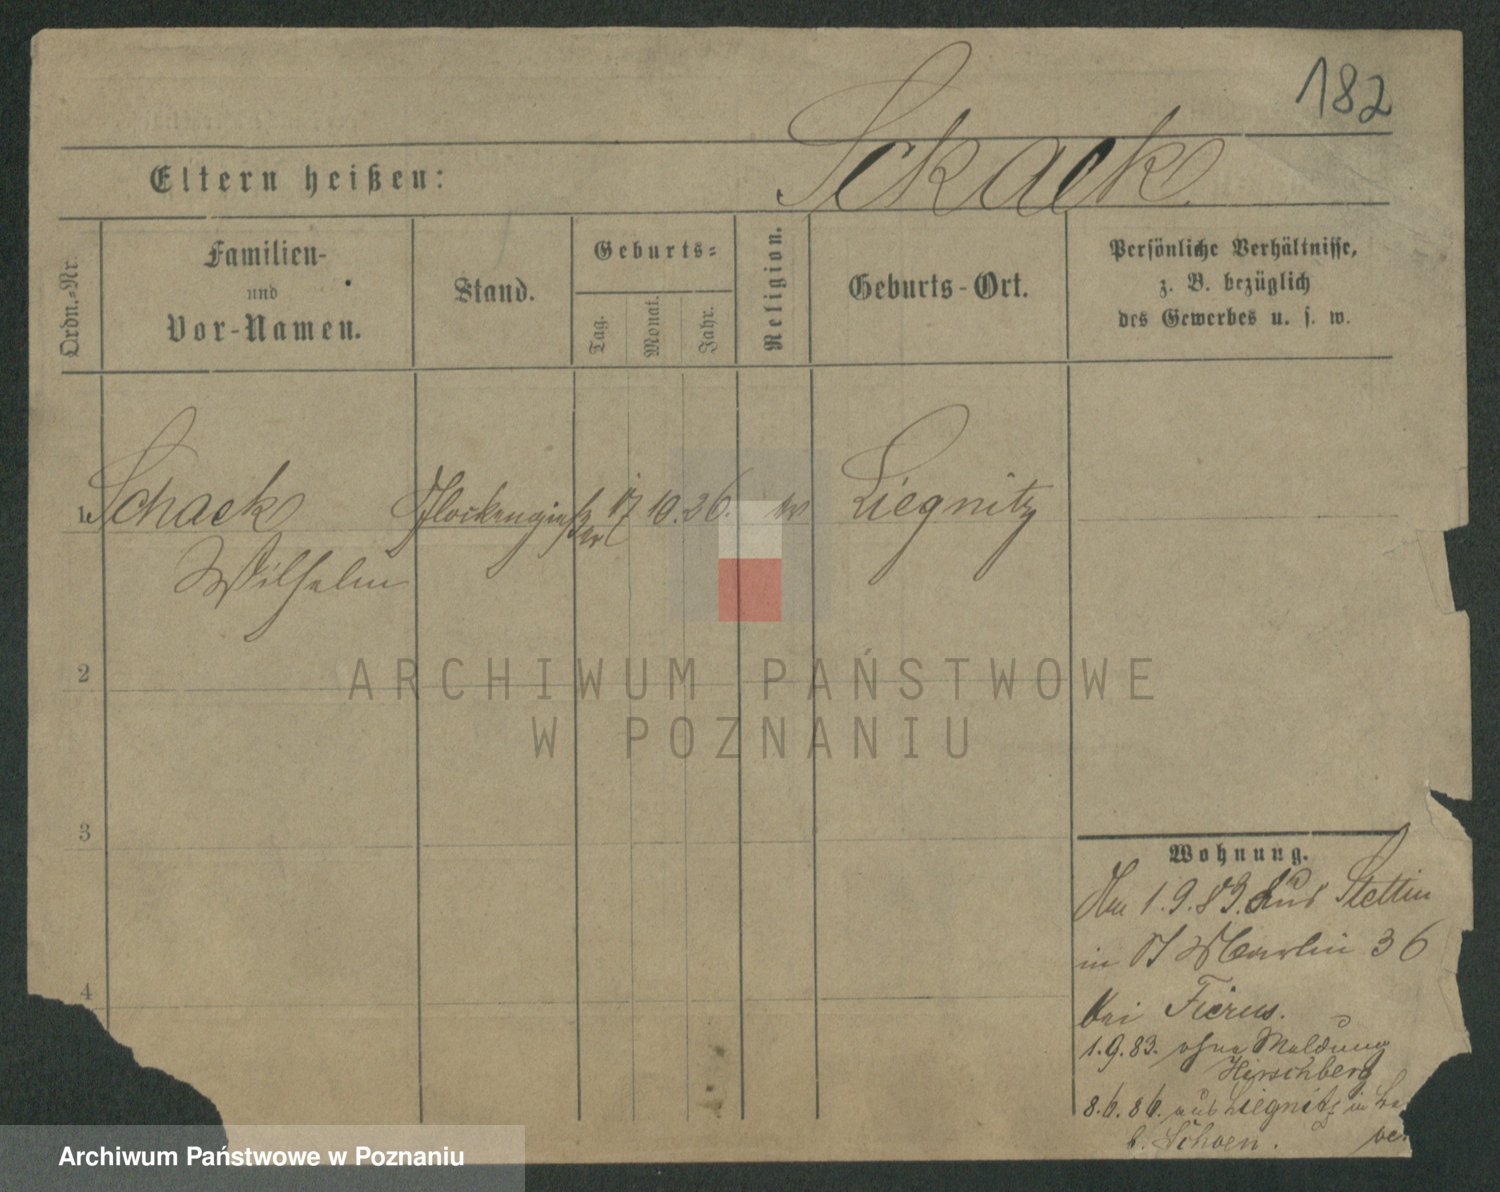 182
Schack
Eltern heißen:
Ordn.-Nr.
Familien-
und
Vor-Namen.
Stand.
Geburts-
Tag.
Monat.
Jahr.
Religion.
Geburts-Ort.
Persönliche Verhältnisse,
z. B. bezüglich
des Gewerbes u. s. w.
1. Schack Glockengießer 17 10. 26. Liegnitz
Wilhelm
2
3
4
ARCHIWUM PAŃSTWOWE
W POZNANIU
Wohnung.
1.9.83. aus Stettin
in St Martin 36
bei
1.9.83. ohne Meldung
Hirschberg
8.6.86. aus Liegnitz in
b. Schoen.
Archiwum Państwowe w Poznaniu